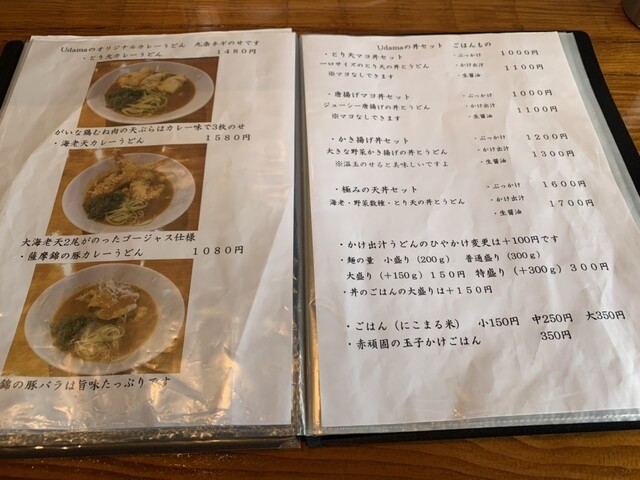 Udamaのオリジナルカレーうどん 九条ネギのせです
・とり天カレーうどん 1480円
がいな鶏むね肉の天ぷらはカレー味で3枚のせ
・海老天カレーうどん 1580円
大海老天2尾がのったゴージャス仕様
・薩摩錦の豚カレーうどん 1080円
錦の豚バラは旨味たっぷりです
Udamaの丼セット ごはんもの
・とり天マヨ丼セット ・ぶっかけ 1000円
一口サイズのとり天の丼とうどん ・かけ出汁 1100円
※マヨなしできます ・生醤油
・唐揚げマヨ丼セット ・ぶっかけ 1000円
ジューシー唐揚げの丼とうどん ・かけ出汁 1100円
※マヨなしできます ・生醤油
・かき揚げ丼セット ・ぶっかけ 1200円
大きな野菜かき揚げの丼とうどん ・かけ出汁 1300円
※温玉のせると美味しいですよ ・生醤油
・極みの天丼セット ・ぶっかけ 1600円
海老・野菜数種・とり天の丼とうどん ・かけ出汁 1700円
・生醤油
・かけ出汁うどんのひやかけ変更は+100円です
・麺の量 小盛り(200g) 普通盛り(300g)
大盛り(+150g)150円 特盛り(+300g)300円
・丼のごはんの大盛りは+150円
・ごはん(にこまる米) 小150円 中250円 大350円
・赤頑固の玉子かけごはん 350円